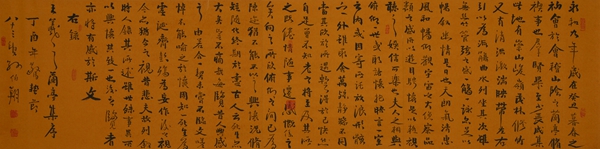 永和九年歲在癸丑暮春之
初會於會稽山陰之蘭亭脩
禊事也群賢畢至少長咸集
此地有崇山峻領茂林脩竹
又有清流激湍映帶左右
引以為流觴曲水列坐其次雖
無絲竹管弦之盛一觴一詠亦足
以暢敘幽情是日也天朗氣清惠
風和暢仰觀宇宙之大俯察品
類之盛所以遊目騁懷足以極視
聽之娛信可樂也夫人之相與
俯仰一世或取諸懷抱悟言一室
之內或因寄所託放浪形骸
之外雖趣舍萬殊靜躁不同
當其欣於所遇暫得於己快然
自足不知老之將至及其所
之既倦情隨事遷感慨係之
矣向之所欣俛仰之間以為
陳迹猶不能不以之興懷況脩
短隨化終期於盡古人云死生亦
大矣豈不痛哉每攬昔人興感之
由若合一契未嘗不臨文嗟
悼不能喻之於懷固知一死生為
虛誕齊彭殤為妄作後之視
今亦由今之視昔悲夫故列敘
時人錄其所述雖世殊事異所
以興懷其致一也後之攬者
亦將有感於斯文
右錄
王羲之蘭亭集序
丁酉